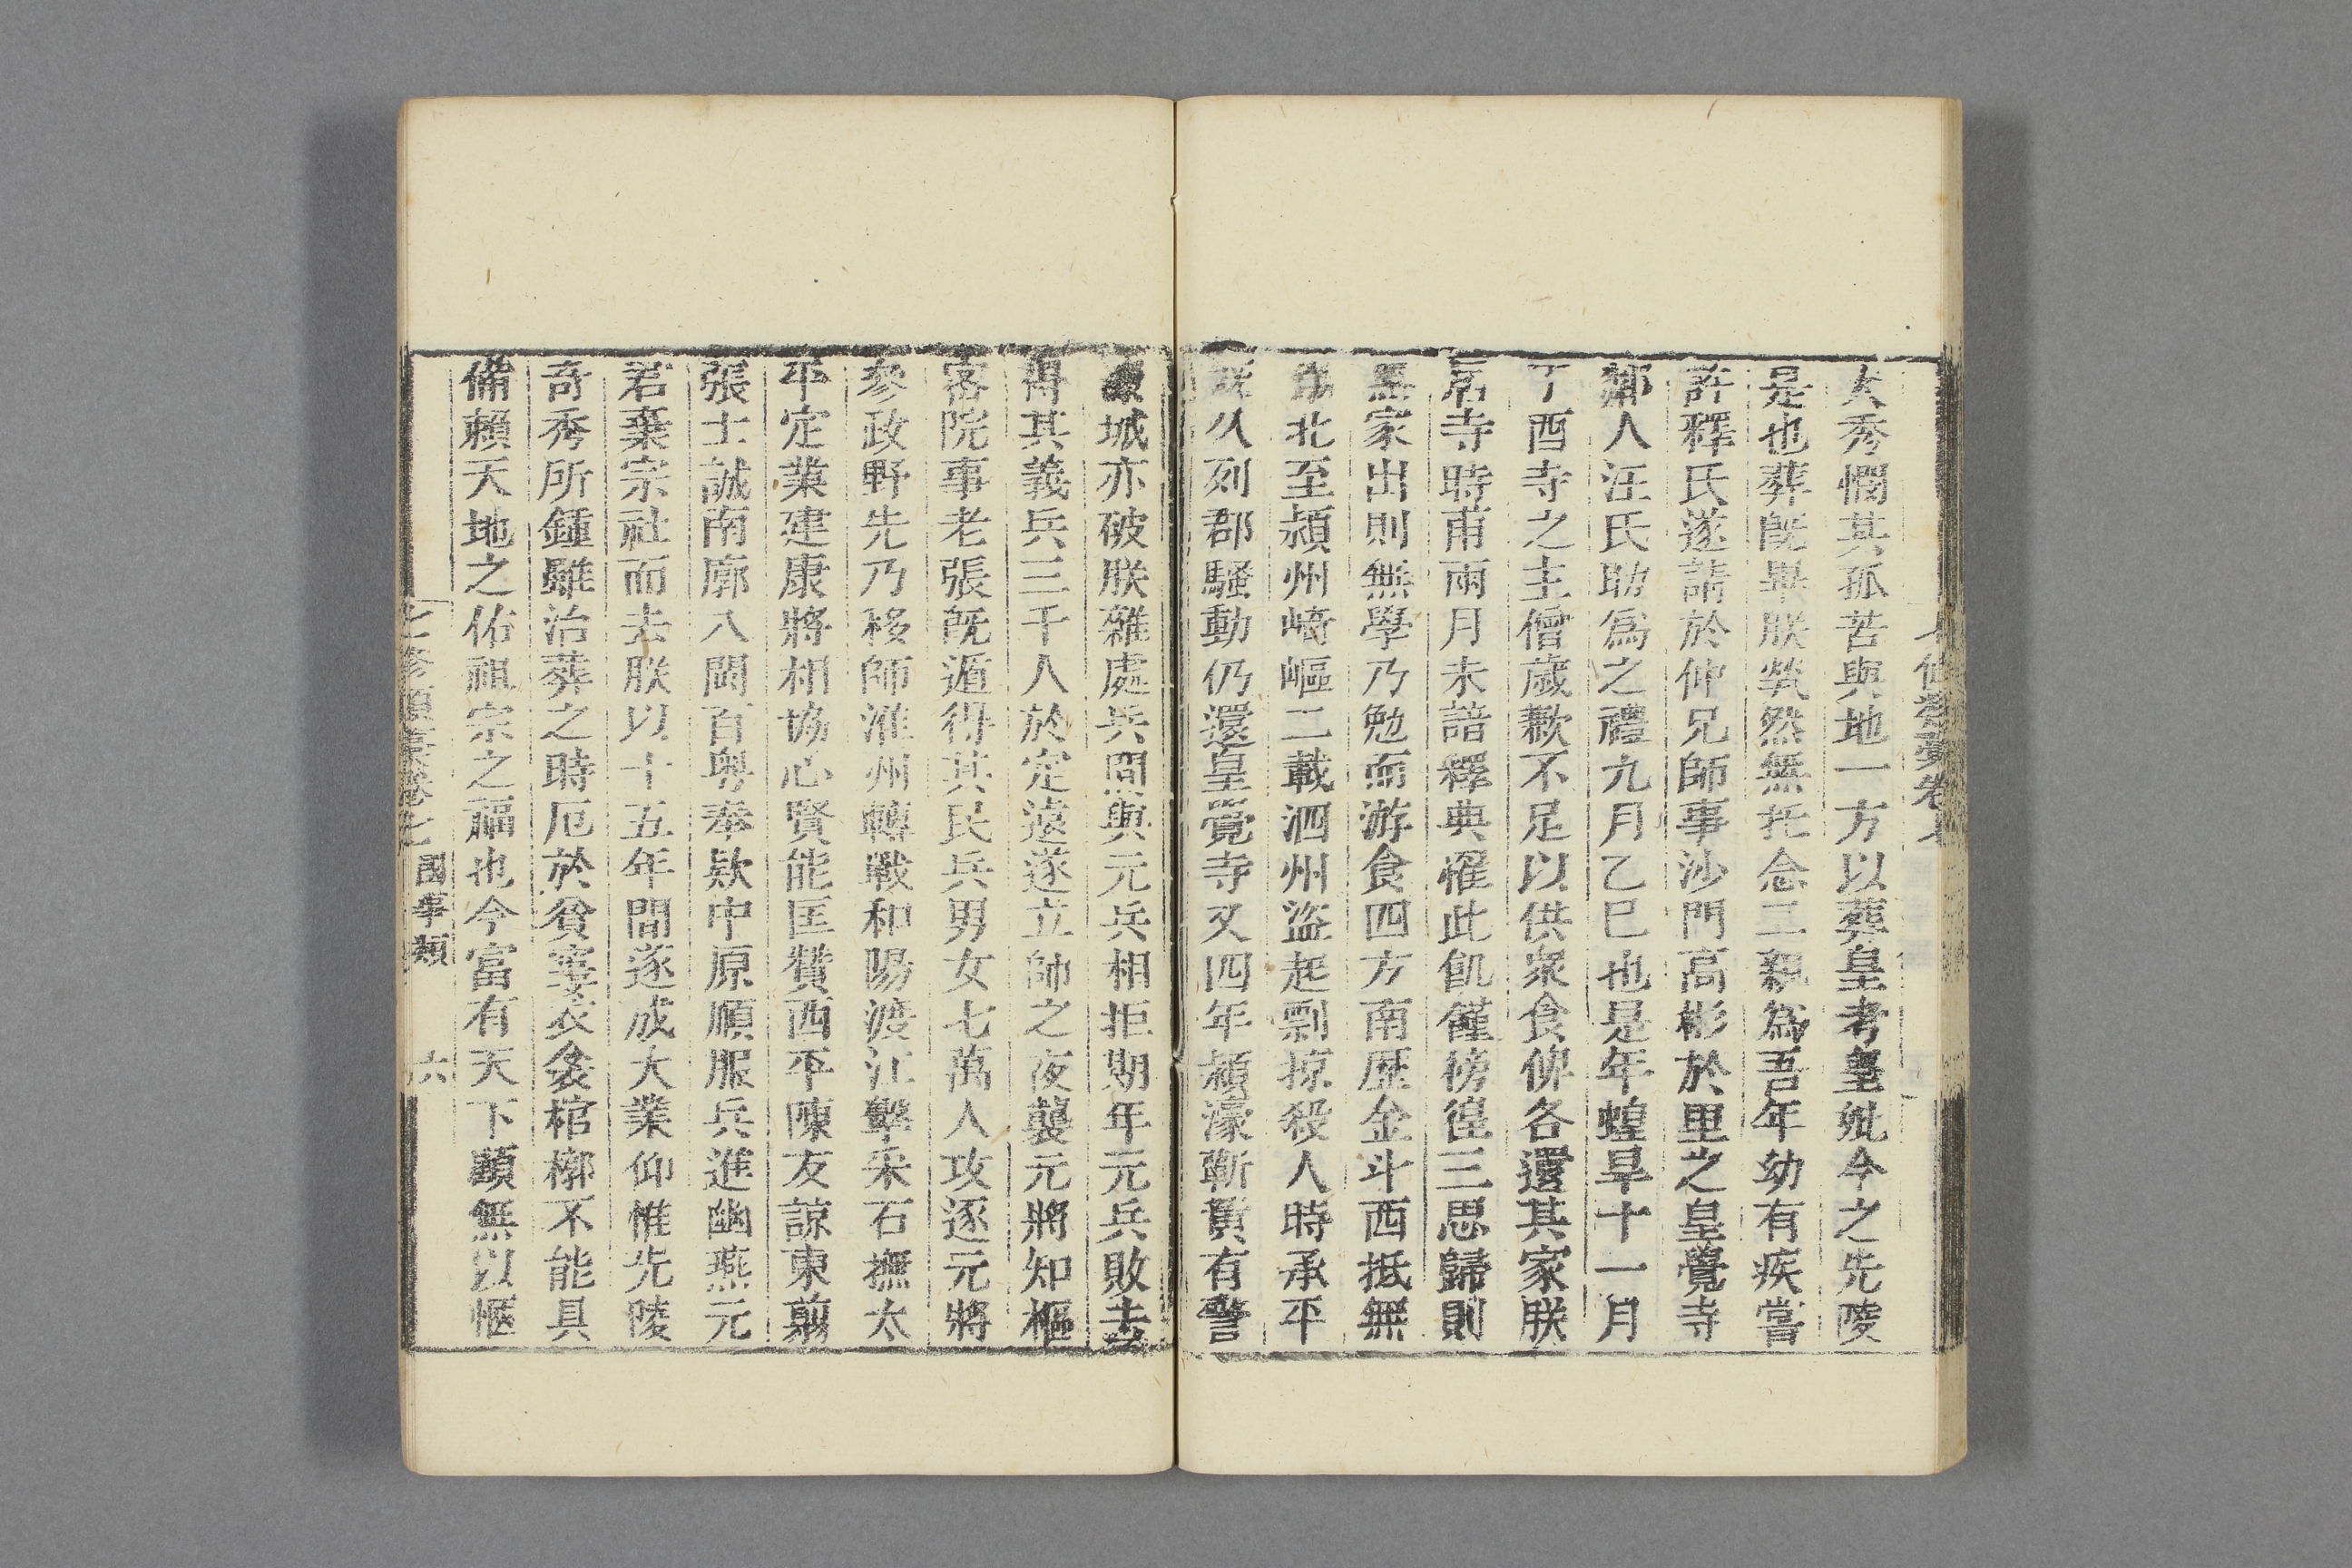 大秀憫其孤苦與地一方以葬皇考皇妣今之先陵
是也葬旣畢朕煢然無托念二親爲吾年幼有疾嘗
許釋氏遂請於仲兄師事沙門高彬於里之皇覺寺
鄰人汪氏助爲之禮九月乙巳也是年蝗旱十一月
丁酉寺之主僧歲歉不足以供衆食俾各還其家朕
居寺時甫兩月未諳釋典罹此飢饉徬徨三思歸則
無家出則無學乃勉而游食四方南歷金斗西抵無
北至潁州崎嶇二載泗州盜起剽掠殺人時承平
久列郡騷動仍還皇覺寺又四年潁濠蘄黃有警
城亦破朕雜處兵間與元兵相拒期年元兵敗去
得其義兵三千人於定遠遂立帥之夜襲元將知樞
密院事老張旣遁得其民兵男女七萬人攻逐元將
參政野先乃移師滁州轉戰和陽渡江擊采石撫太
平定業建康將相協心賢能匡贊西平陳友諒東翦
張士誠南廓八閩百粤奉欵中原順服兵進幽燕元
君棄宗社而去朕以十五年間逐成大業仰惟先陵
奇秀所鍾雖治葬之時厄於貧窶衣衾棺槨不能具
備賴天地之佑祖宗之福也今富有天下顧無以愜
七修類稾卷七 國事類 六